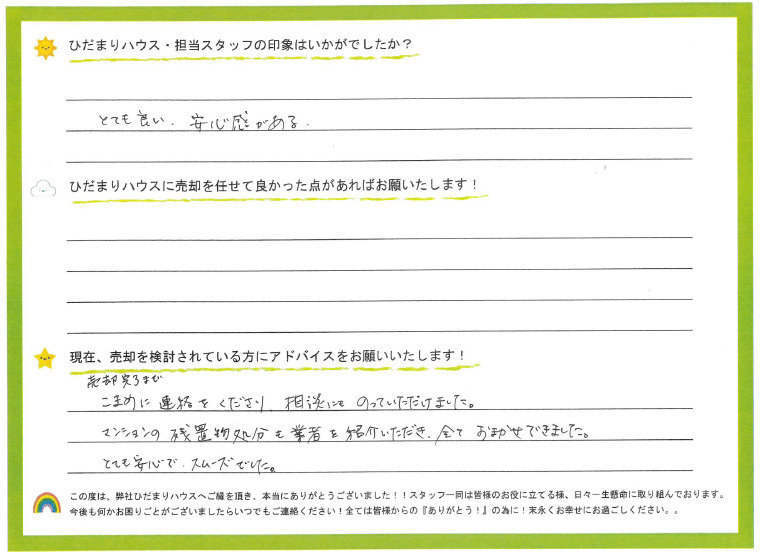 ひだまりハウス・担当スタッフの印象はいかがでしたか?
とても良い. 安心感がある.
ひだまりハウスに売却を任せて良かった点があればお願いたします!
現在、売却を検討されている方にアドバイスをお願いいたします!
売却完了まで
こまめに連絡をくださり、相談にものっていただけました。
マンションの残置物処分も業者を紹介いただき、全ておまかせできました。
とても安心で、スムーズでした。
この度は、弊社ひだまりハウスへご縁を頂き、本当にありがとうございました!!スタッフ一同は皆様のお役に立てる様、日々一生懸命に取り組んでおります。
今後も何かお困りごとがございましたらいつでもご連絡ください!全ては皆様からの『ありがとう!』の為に!末永くお幸せにお過ごしください。。